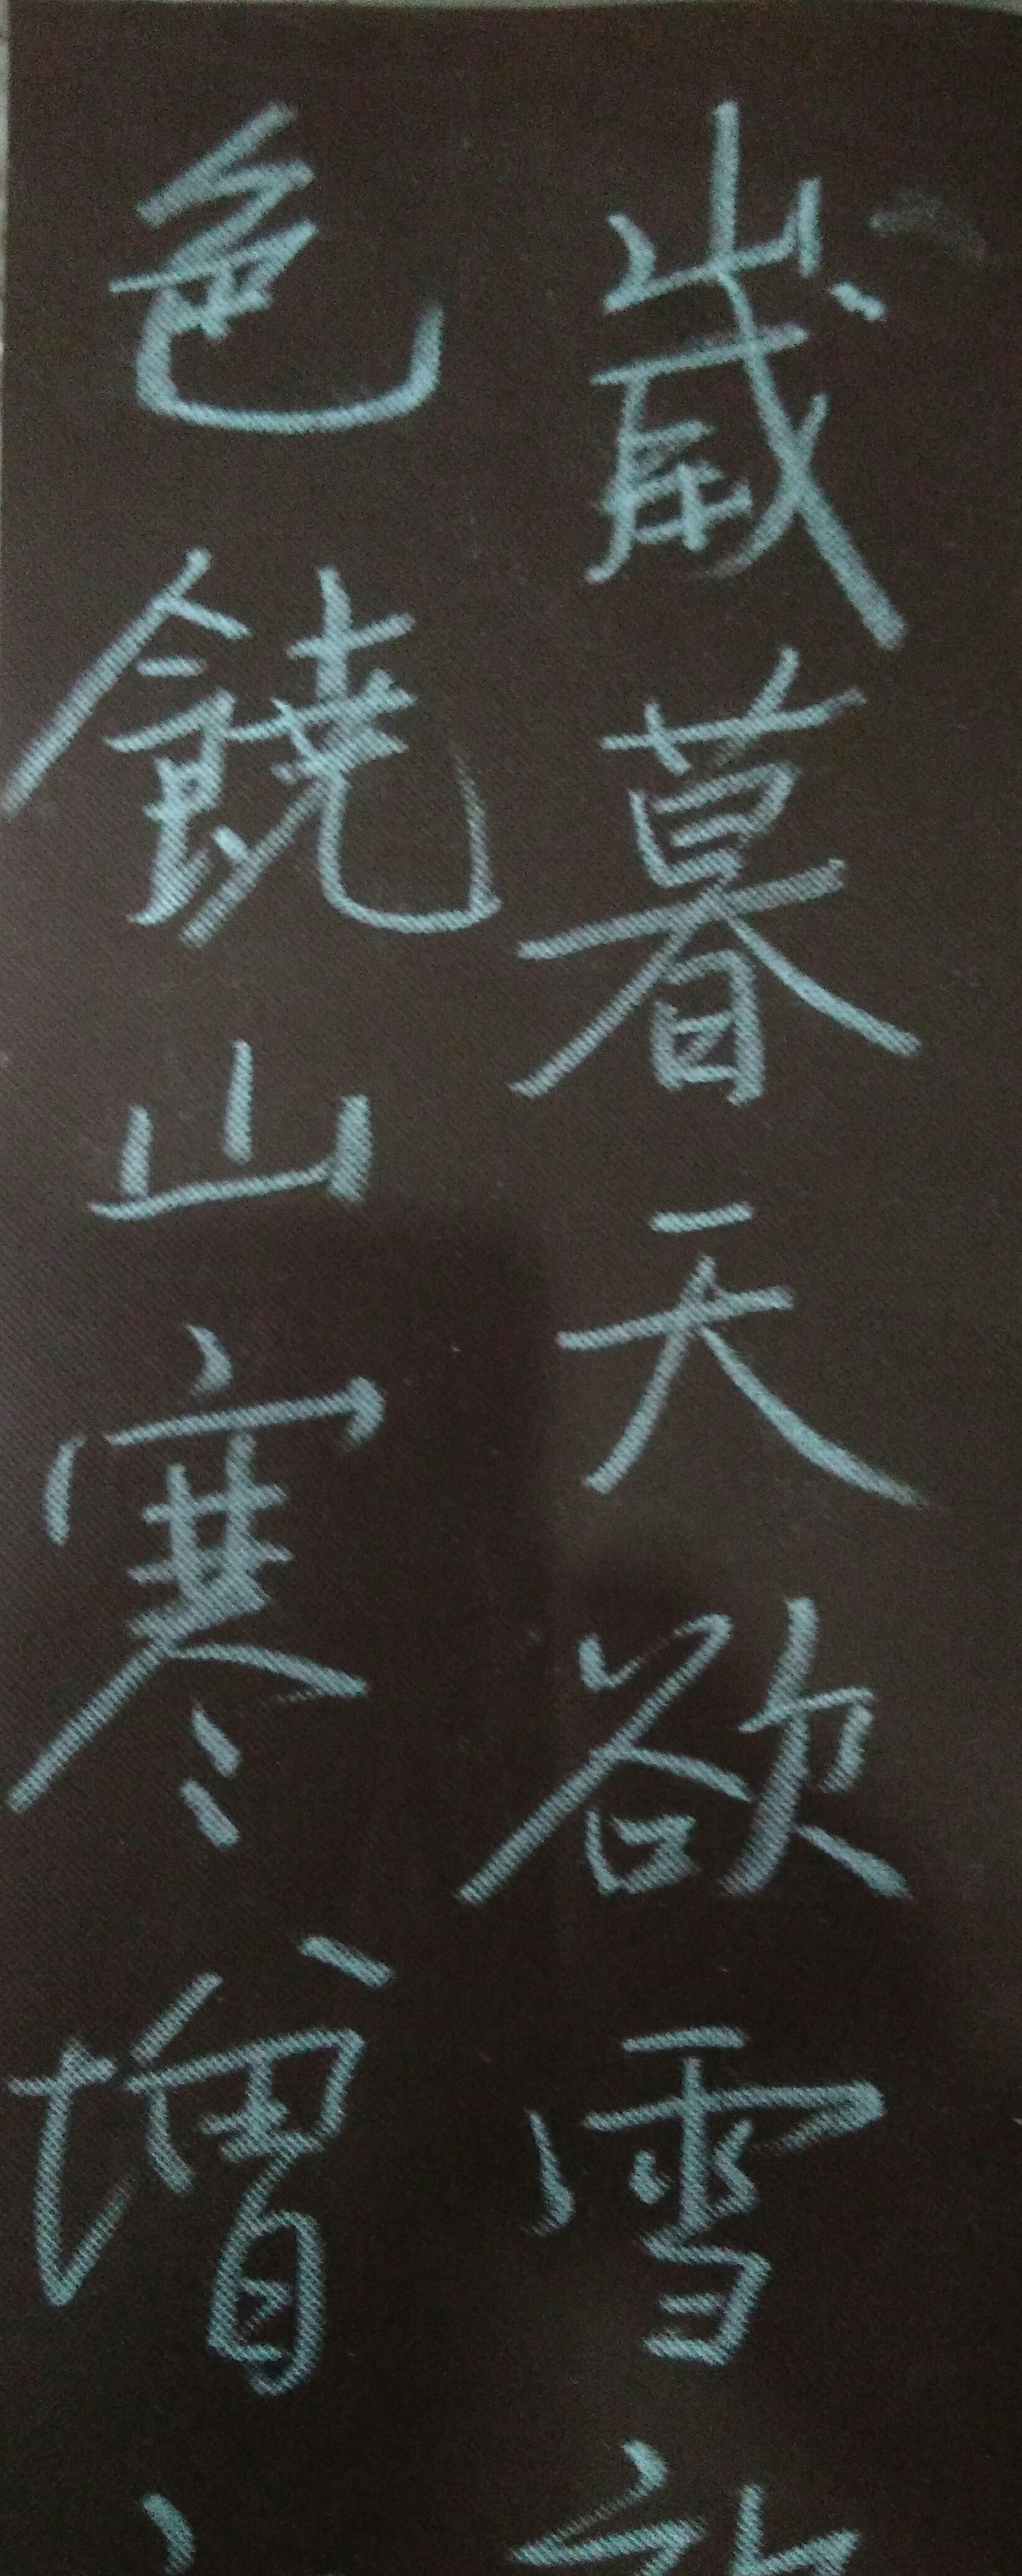 歲暮天欲雪
色饒山寒增